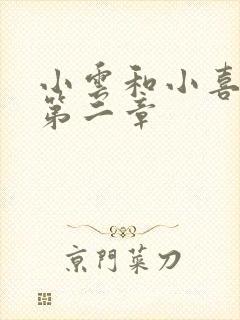 小雲和小喜
第二章
京門菜刀